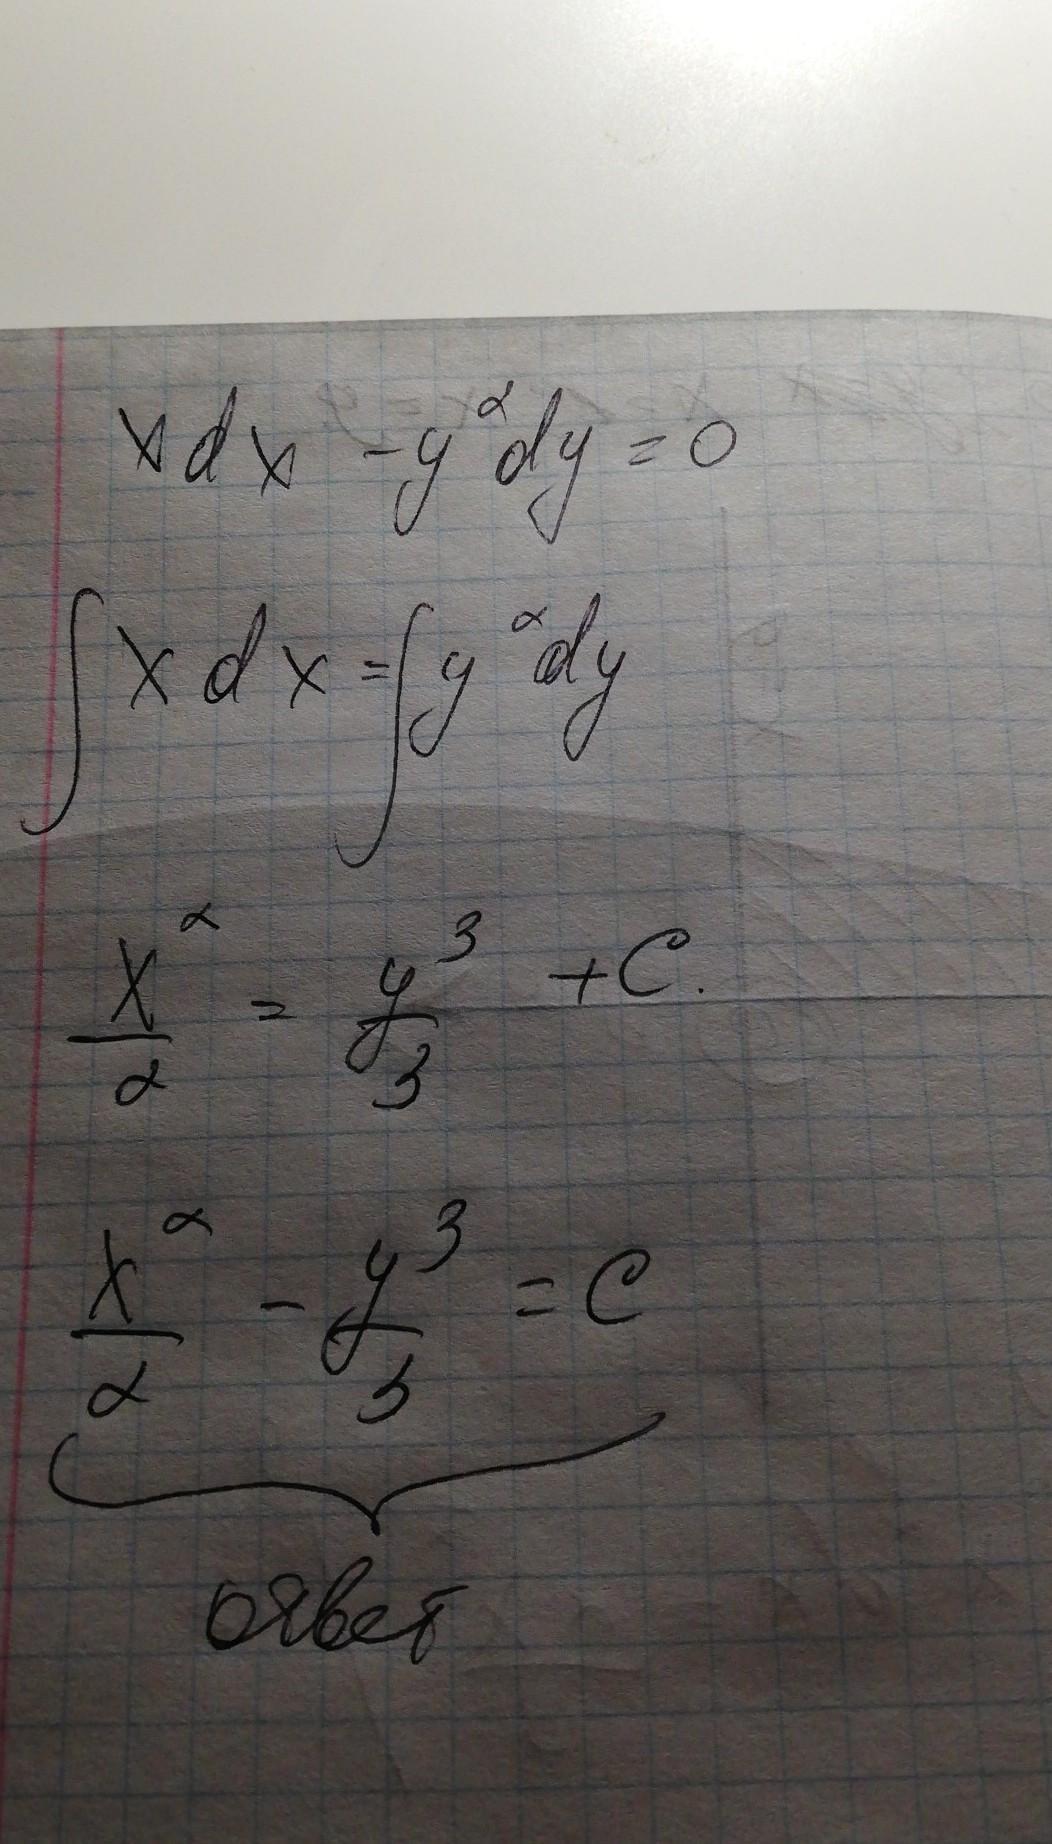 xdx - y²dy = 0
∫xdx = ∫y²dy
x²/2 = y³/3 + C.
x²/2 - y³/3 = C
ответ